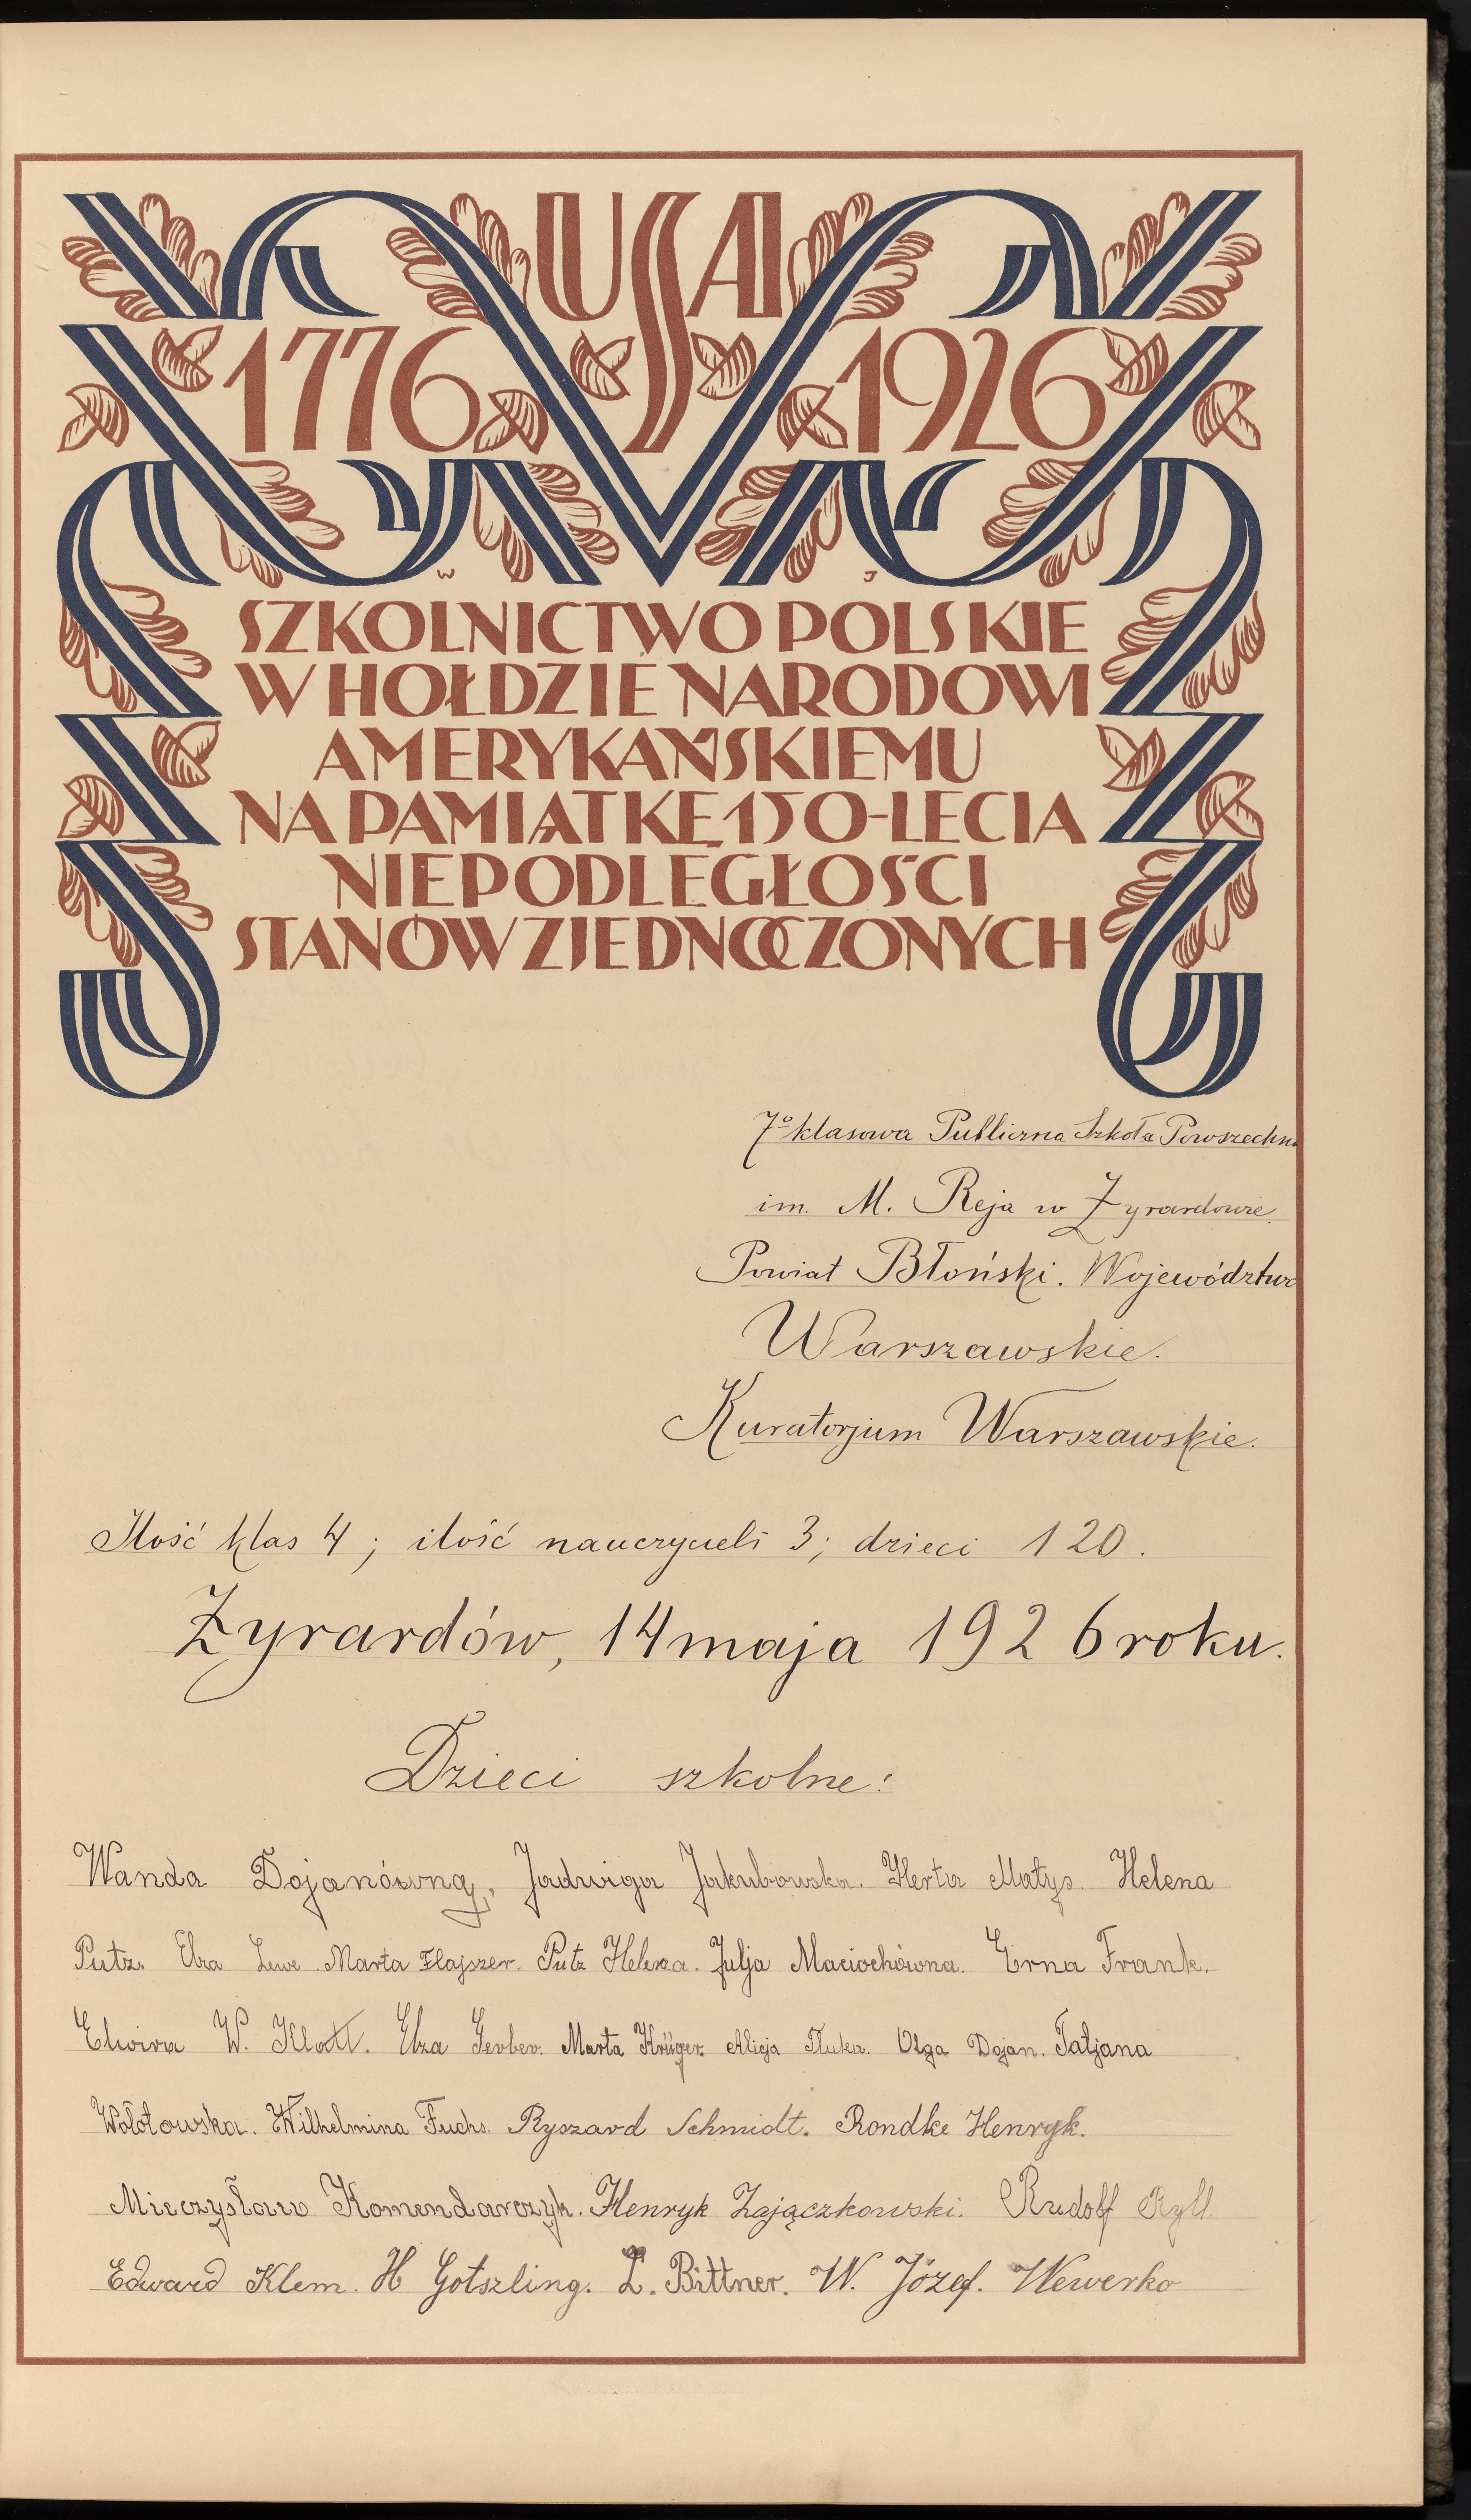 USA
1776 1926
W J
SZKOLNICTWO POLSKIE
W HOŁDZIE NARODOWI
AMERYKAŃSKIEMU
NA PAMIĄTKĘ 150-LECIA
NIEPODLEGŁOŚCI
STANÓW ZJEDNOCZONYCH
7º klasowa Publiczna Szkoła Powszechna
im. M. Reja w Żyrardowie.
Powiat Błoński. Województwo
Warszawskie.
Kuratorjum Warszawskie.
Ilość klas 4; ilość nauczycieli 3; dzieci 120.
Żyrardów, 14 maja 1926 roku.
Dzieci szkolne:
Wanda Dojanówną, Jadwiga Jakubowska. Herta Matys. Helena
Putz. Elza Lewe. Marta Flajszer. Putz Helena. Julja Maciochówna. Erna Frank.
Elwira W. Klatt. Elza Gerber. Marta Krüger. Alicja Tluka. Olga Dojan. Tatjana
Wołotowska. Wilhelmina Fuchs. Ryszard Schmidt. Rondke Henryk.
Mieczysław Komendarczyk. Henryk Zajączkowski. Rudolf Ryll
Edward Klem. H Gotszling. L. Bittner. W. Józef. Wewerko